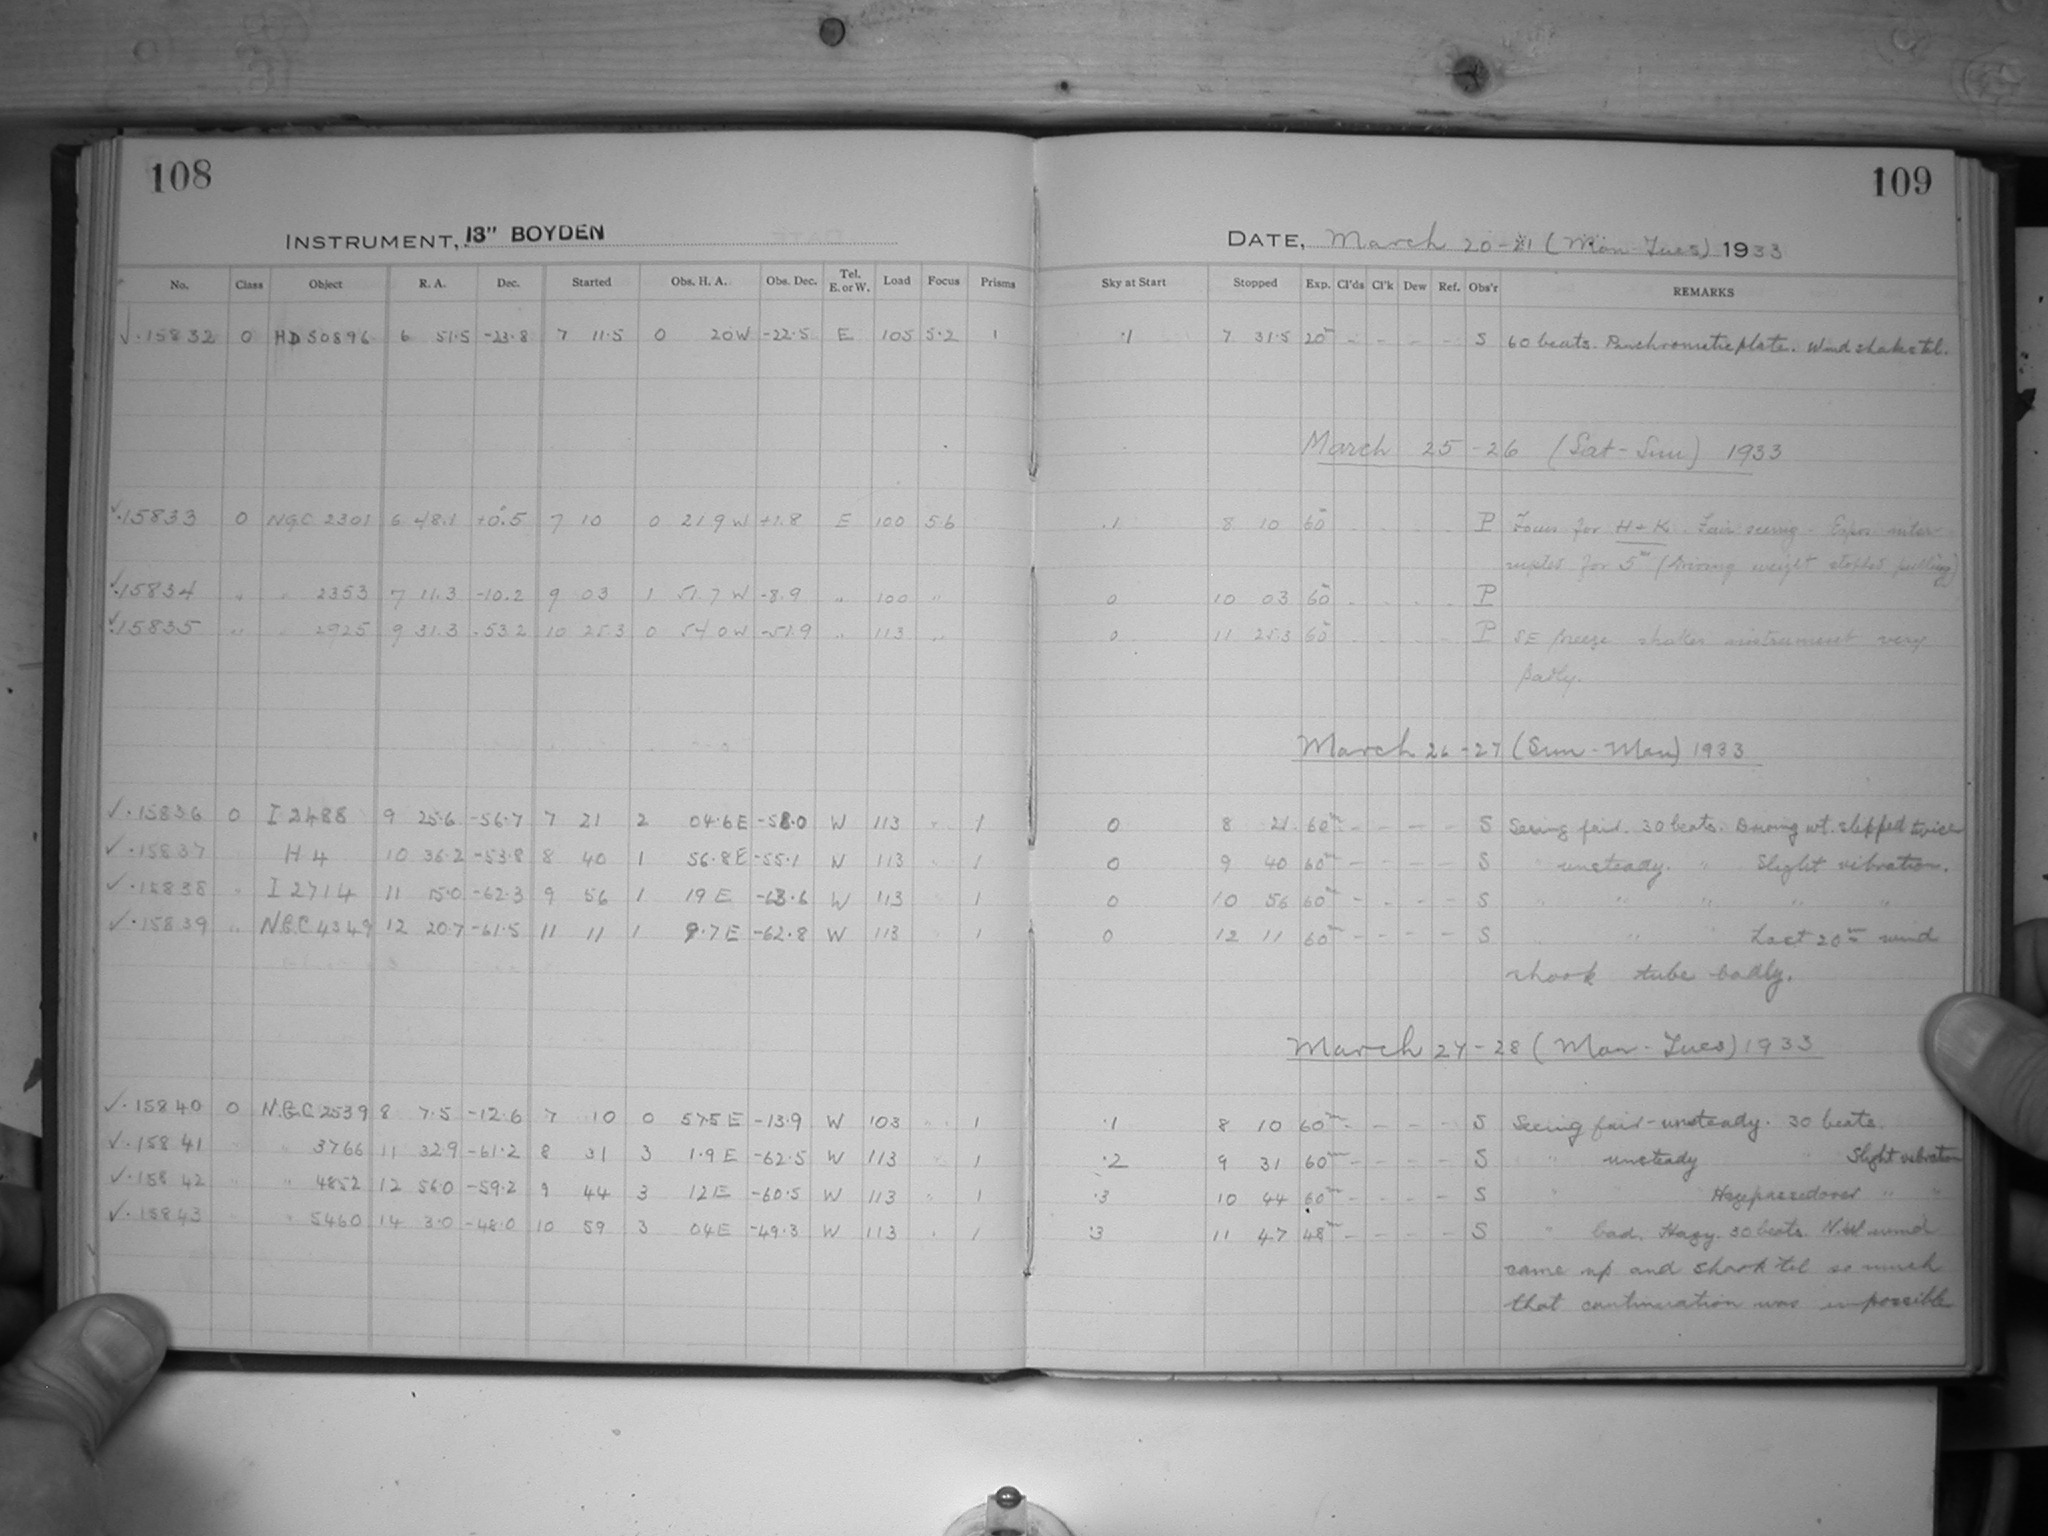 108
109
INSTRUMENT, 13" BOYDEN
DATE, March 20-21 (Mon-Tues) 1933
No. Class Object R. A. Dec. Started Obs. H. A. Obs. Dec. Tel. E. or W. Load Focus Prisms Sky at Start Stopped Exp. Cl'ds Cl'k Dew Ref. Obs'r REMARKS
✓·15832 0 HD 50896 6 51.5 -23.8 7 11.5 0 20W -22.5 E 105 5.2 1 ·1 7 31.5 20m - - - - S 60 beats. Panchromatic plate. Wind shakes tel.
March 25-26 (Sat-Sun) 1933
✓·15833 0 NGC 2301 6 48.1 +0.5 7 10 0 21.9 W +1.8 E 100 5.6 .1 8 10 60m . . . . P Focus for H+K. Fair seeing. Expos. inter-
rupted for 5m (Driving weight stopped pulling)
✓·15834 " " 2353 7 11.3 -10.2 9 03 1 51.7 W -8.9 " 100 " 0 10 03 60m . . . . P
✓·15835 " " 2925 9 31.3 -53.2 10 25.3 0 54.0 W -51.9 " 113 " 0 11 25.3 60m . . . . P SE breeze shakes instrument very
badly.
March 26-27 (Sun-Mon) 1933
✓·15836 0 I 2488 9 25.6 -56.7 7 21 2 04.6 E -58.0 W 113 " 1 0 8 21 60m - - - - S Seeing fair. 30 beats. Driving wt. slipped twice
✓·15837 " H 4 10 36.2 -53.8 8 40 1 56.8 E -55.1 W 113 " 1 0 9 40 60m - - - - S " unsteady. " Slight vibration.
✓·15838 " I 2714 11 15.0 -62.3 9 56 1 19 E -63.6 W 113 1 0 10 56 60m - - - - S " " " " "
✓·15839 " N.G.C 4349 12 20.7 -61.5 11 11 1 9.7 E -62.8 W 113 1 0 12 11 60m - - - - S " " " Last 20m wind
shook tube badly.
March 27-28 (Mon-Tues) 1933
✓·15840 0 N.G.C 2539 8 7.5 -12.6 7 10 0 57.5 E -13.9 W 103 " 1 ·1 8 10 60m - - - - S Seeing fair-unsteady. 30 beats.
✓·15841 " " 3766 11 32.9 -61.2 8 31 3 1.9 E -62.5 W 113 " 1 ·2 9 31 60m - - - - S " unsteady " Slight vibration
✓·15842 " " 4852 12 56.0 -59.2 9 44 3 12 E -60.5 W 113 " 1 ·3 10 44 60m - - - - S " Haze passed over " "
✓·15843 " " 5460 14 3.0 -48.0 10 59 3 04 E -49.3 W 113 " 1 ·3 11 47 48m - - - - S " bad. Hazy. 30 beats. N.W wind
came up and shook tel so much
that continuation was impossible